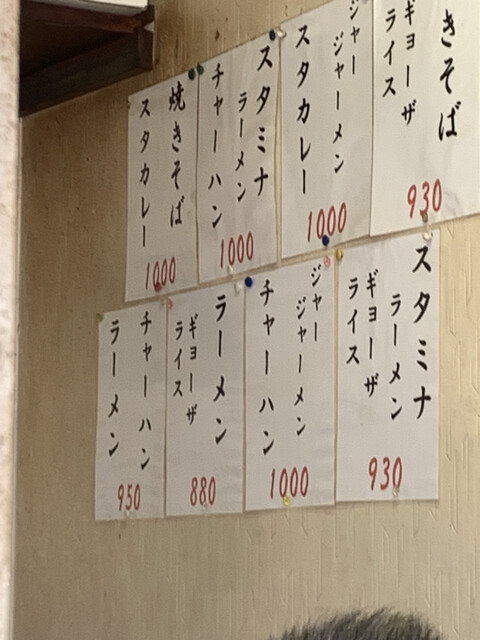 きそば
ギョーザ
ライス
930
ジャー
ジャーメン
スタカレー
1000
スタミナ
ラーメン
チャーハン
1000
焼きそば
スタカレー
1000
スタミナ
ラーメン
ギョーザ
ライス
930
ジャー
ジャーメン
チャーハン
1000
ラーメン
ギョーザ
ライス
880
チャーハン
ラーメン
950